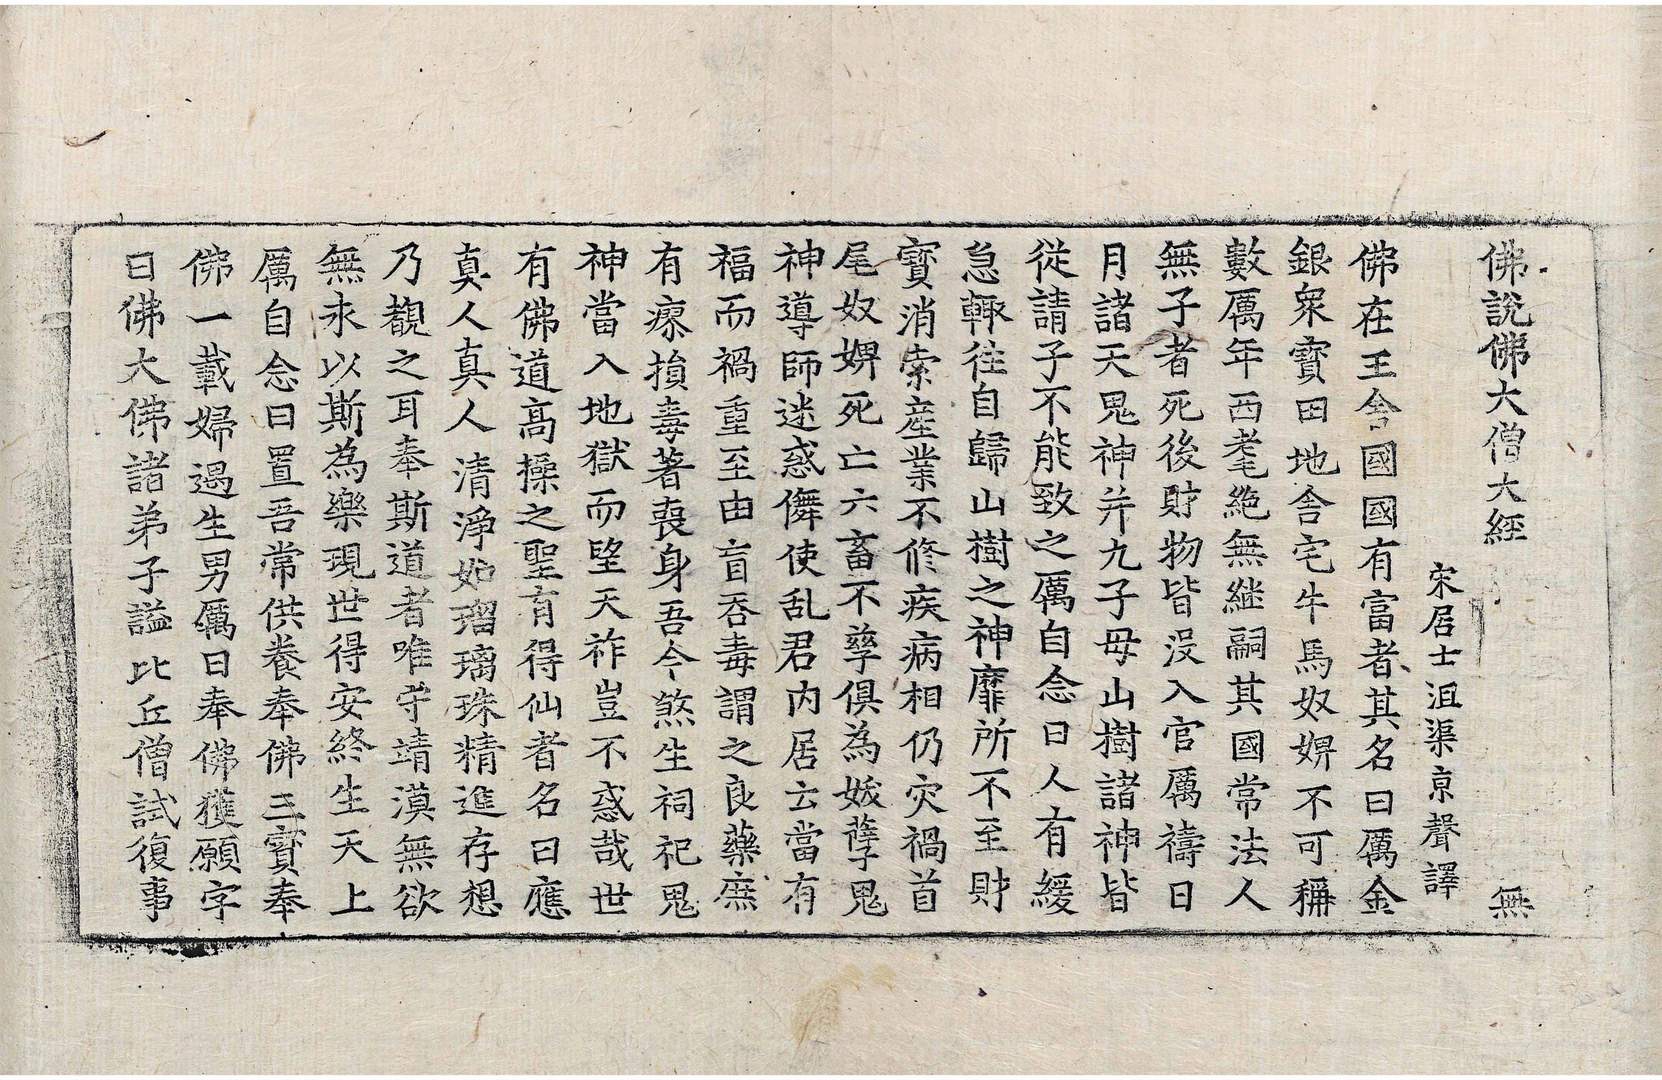 佛說佛大僧大經 無
宋居士沮渠京聲譯
佛在王舍國國有富者其名曰厲金
銀眾寶田地舍宅牛馬奴婢不可稱
數厲年西耄絶無継嗣其國常法人
無子者死後財物皆没入官厲禱日
月諸天鬼神并九子母山樹諸神皆
從請子不能致之厲自念曰人有緩
急輙往自歸山樹之神靡所不至財
寳消索産業不修疾病相仍灾禍首
尾奴婢死亡六畜不孳俱為妭孽鬼
神導師迷惑儛使乱君内居云當有
福而禍重至由盲吞毒謂之良藥庶
有瘳損毒著喪身吾今煞生祠祀鬼
神當入地獄而望天祚豈不惑哉世
有佛道高操之聖有得仙者名曰應
真人真人清淨如瑠璃珠精進存想
乃覩之耳奉斯道者唯守靖漠無欲
無求以斯為樂現世得安終生天上
厲自念曰置吾常供養奉佛三寳奉
佛一載婦遇生男厲曰奉佛獲願字
曰佛大佛諸弟子謚比丘僧試復事